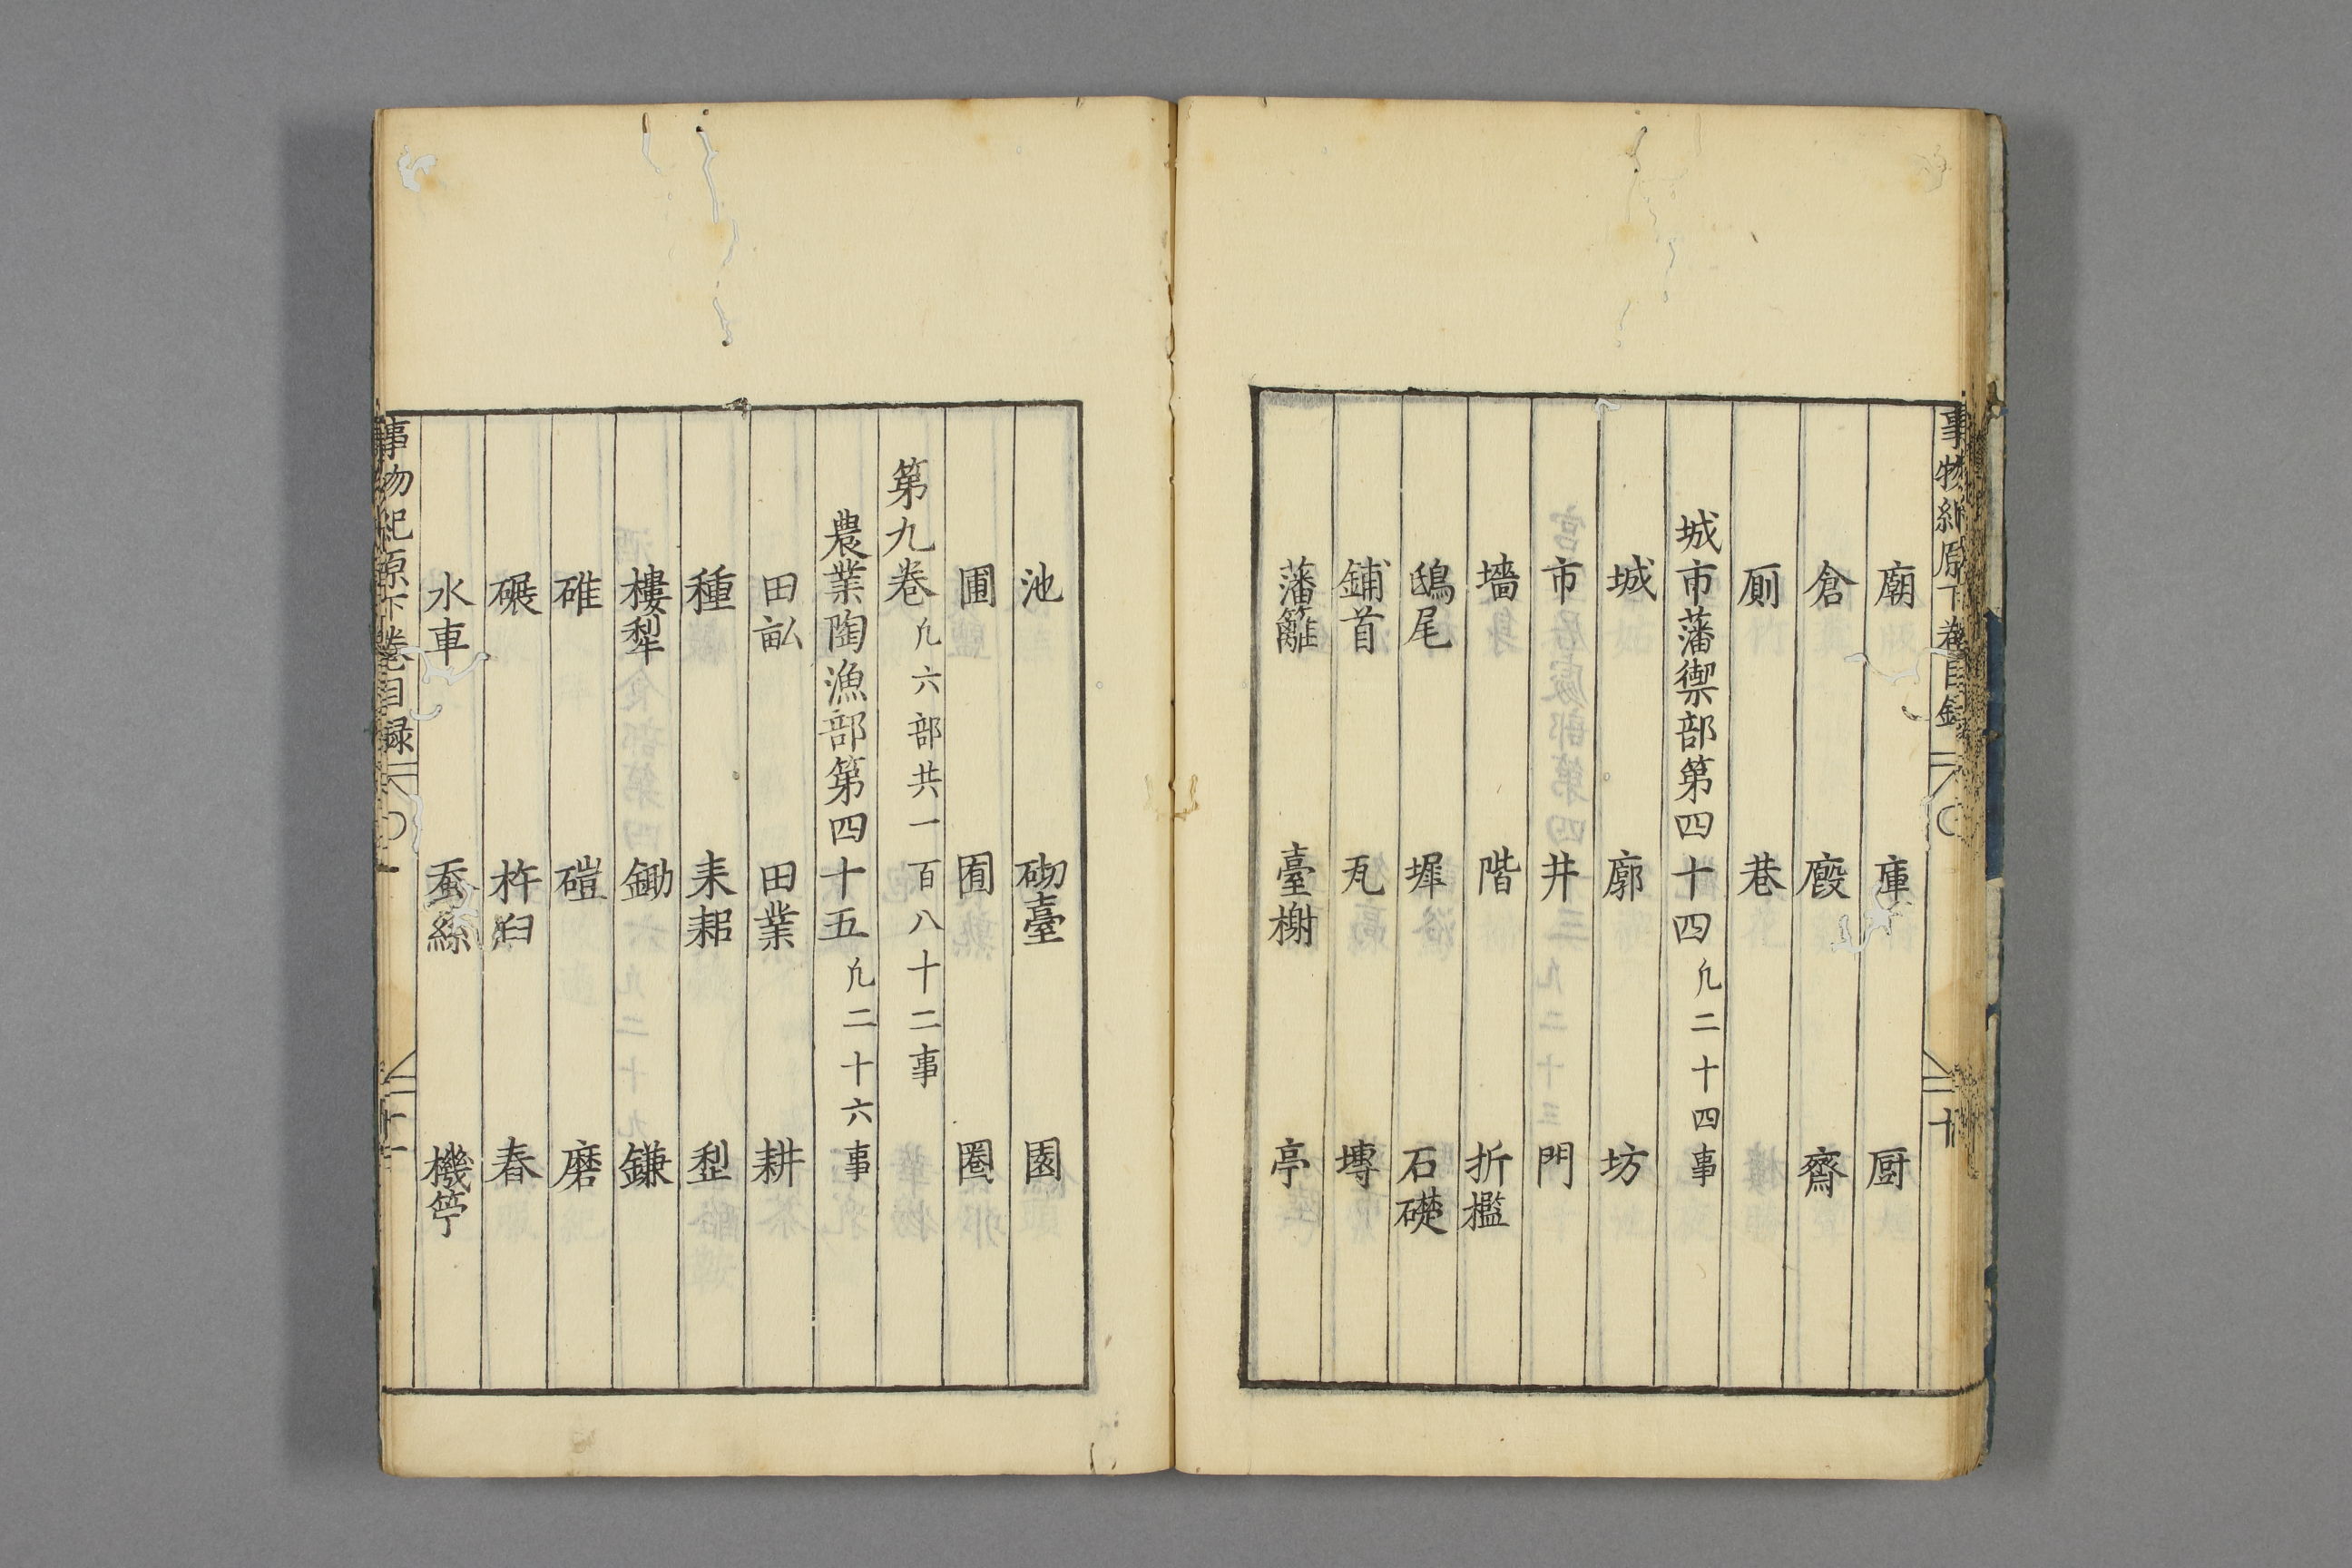 事物紀原下卷目錄
十
廟 庫 厨
倉 廏 齋
厠 巷
城市藩禦部第四十四 凢二十四事
城 廓 坊
市 井 門
墻 階 折檻
鴟尾 墀 石礎
鋪首 瓦 塼
藩籬 臺榭 亭
池 砌臺 園
圃 囿 圈
第九卷 凢六部共一百八十二事
農業陶漁部第四十五 凢二十六事
田畆 田業 耕
種 耒耜 犁
樓犁 鋤 鎌
碓 磑 磨
碾 杵臼 舂
水車 蚕絲 機䇡
事物紀原下卷目録
十一